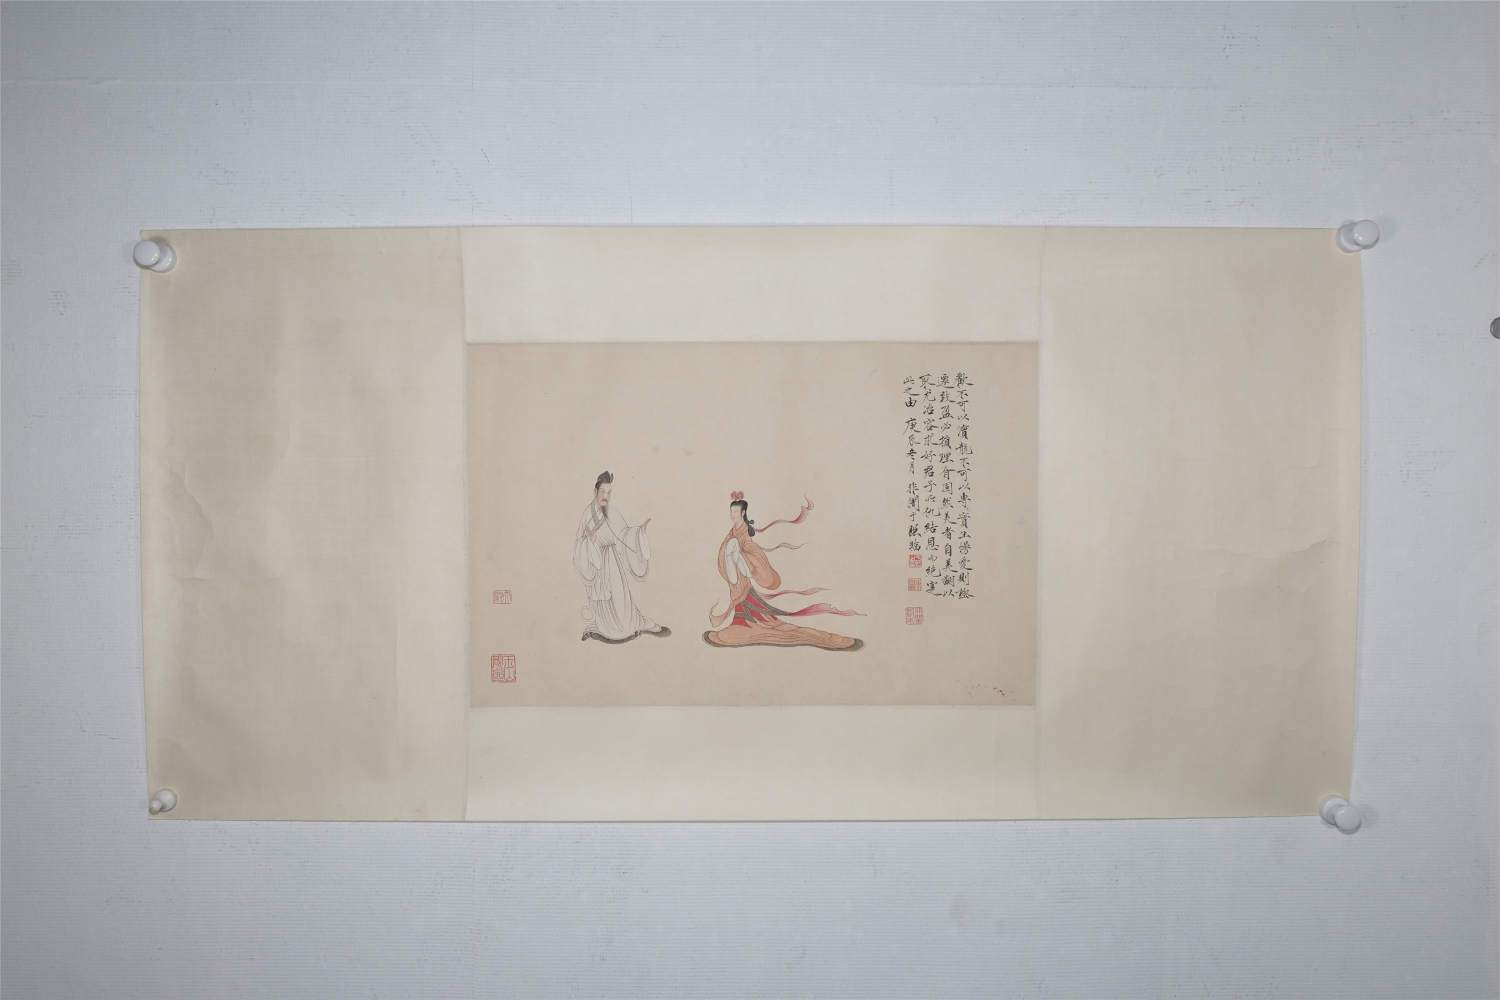 歡不可以瀆寵不可以專實生慢愛則極
遷致盈必損理有固然美者自美翩以
取尤冶容求好君子所仇結恩而絕寔
此之由 庚辰冬月 非闇于照臨